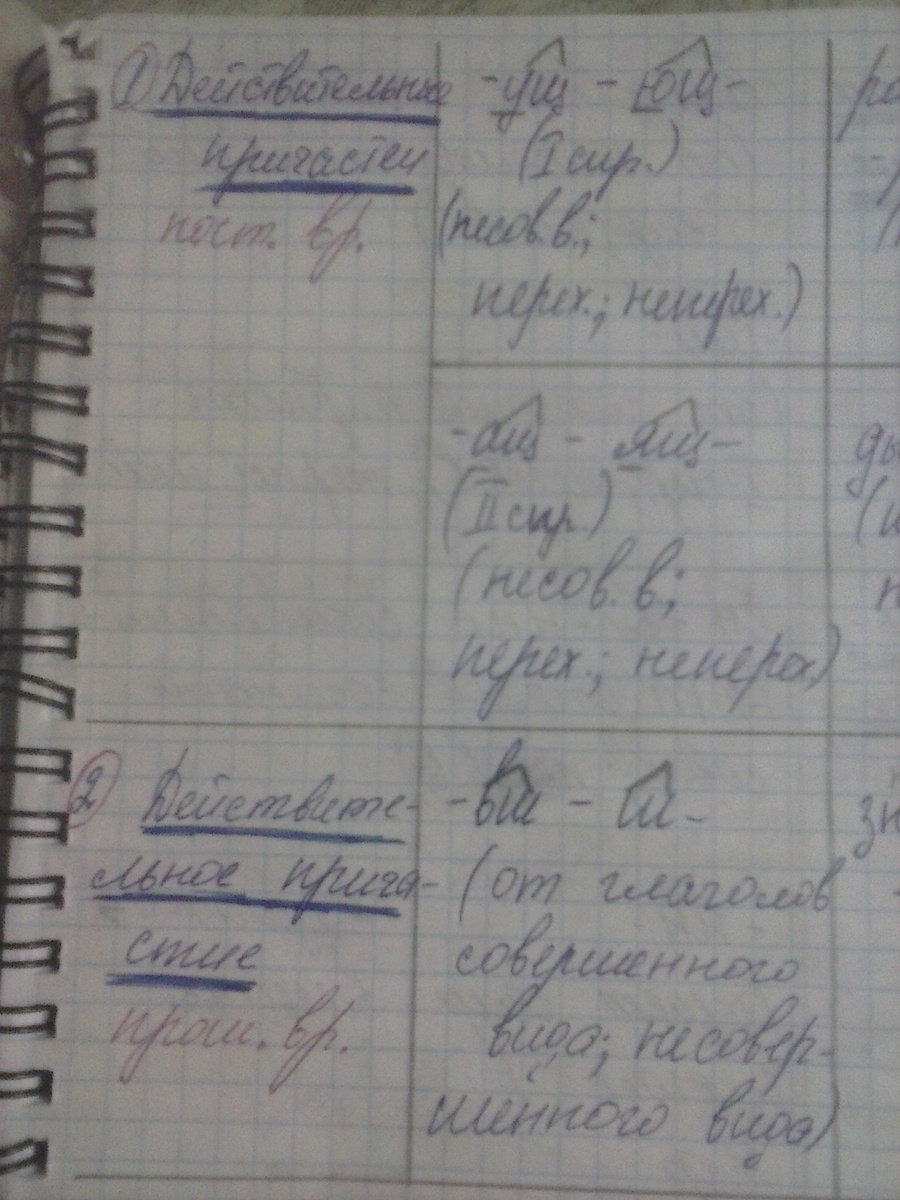 ① Действительные
причастия
наст. вр.
-ущ - ющ-
(I спр.)
(несов.в.;
перех.; неперех.)
-ащ - ящ-
(II спр.)
(несов. в;
перех.; неперех)
② Действите-
льное прича-
стие
прош. вр.
-вш - ш-
(от глаголов
совершенного
вида; несовер-
шенного вида)